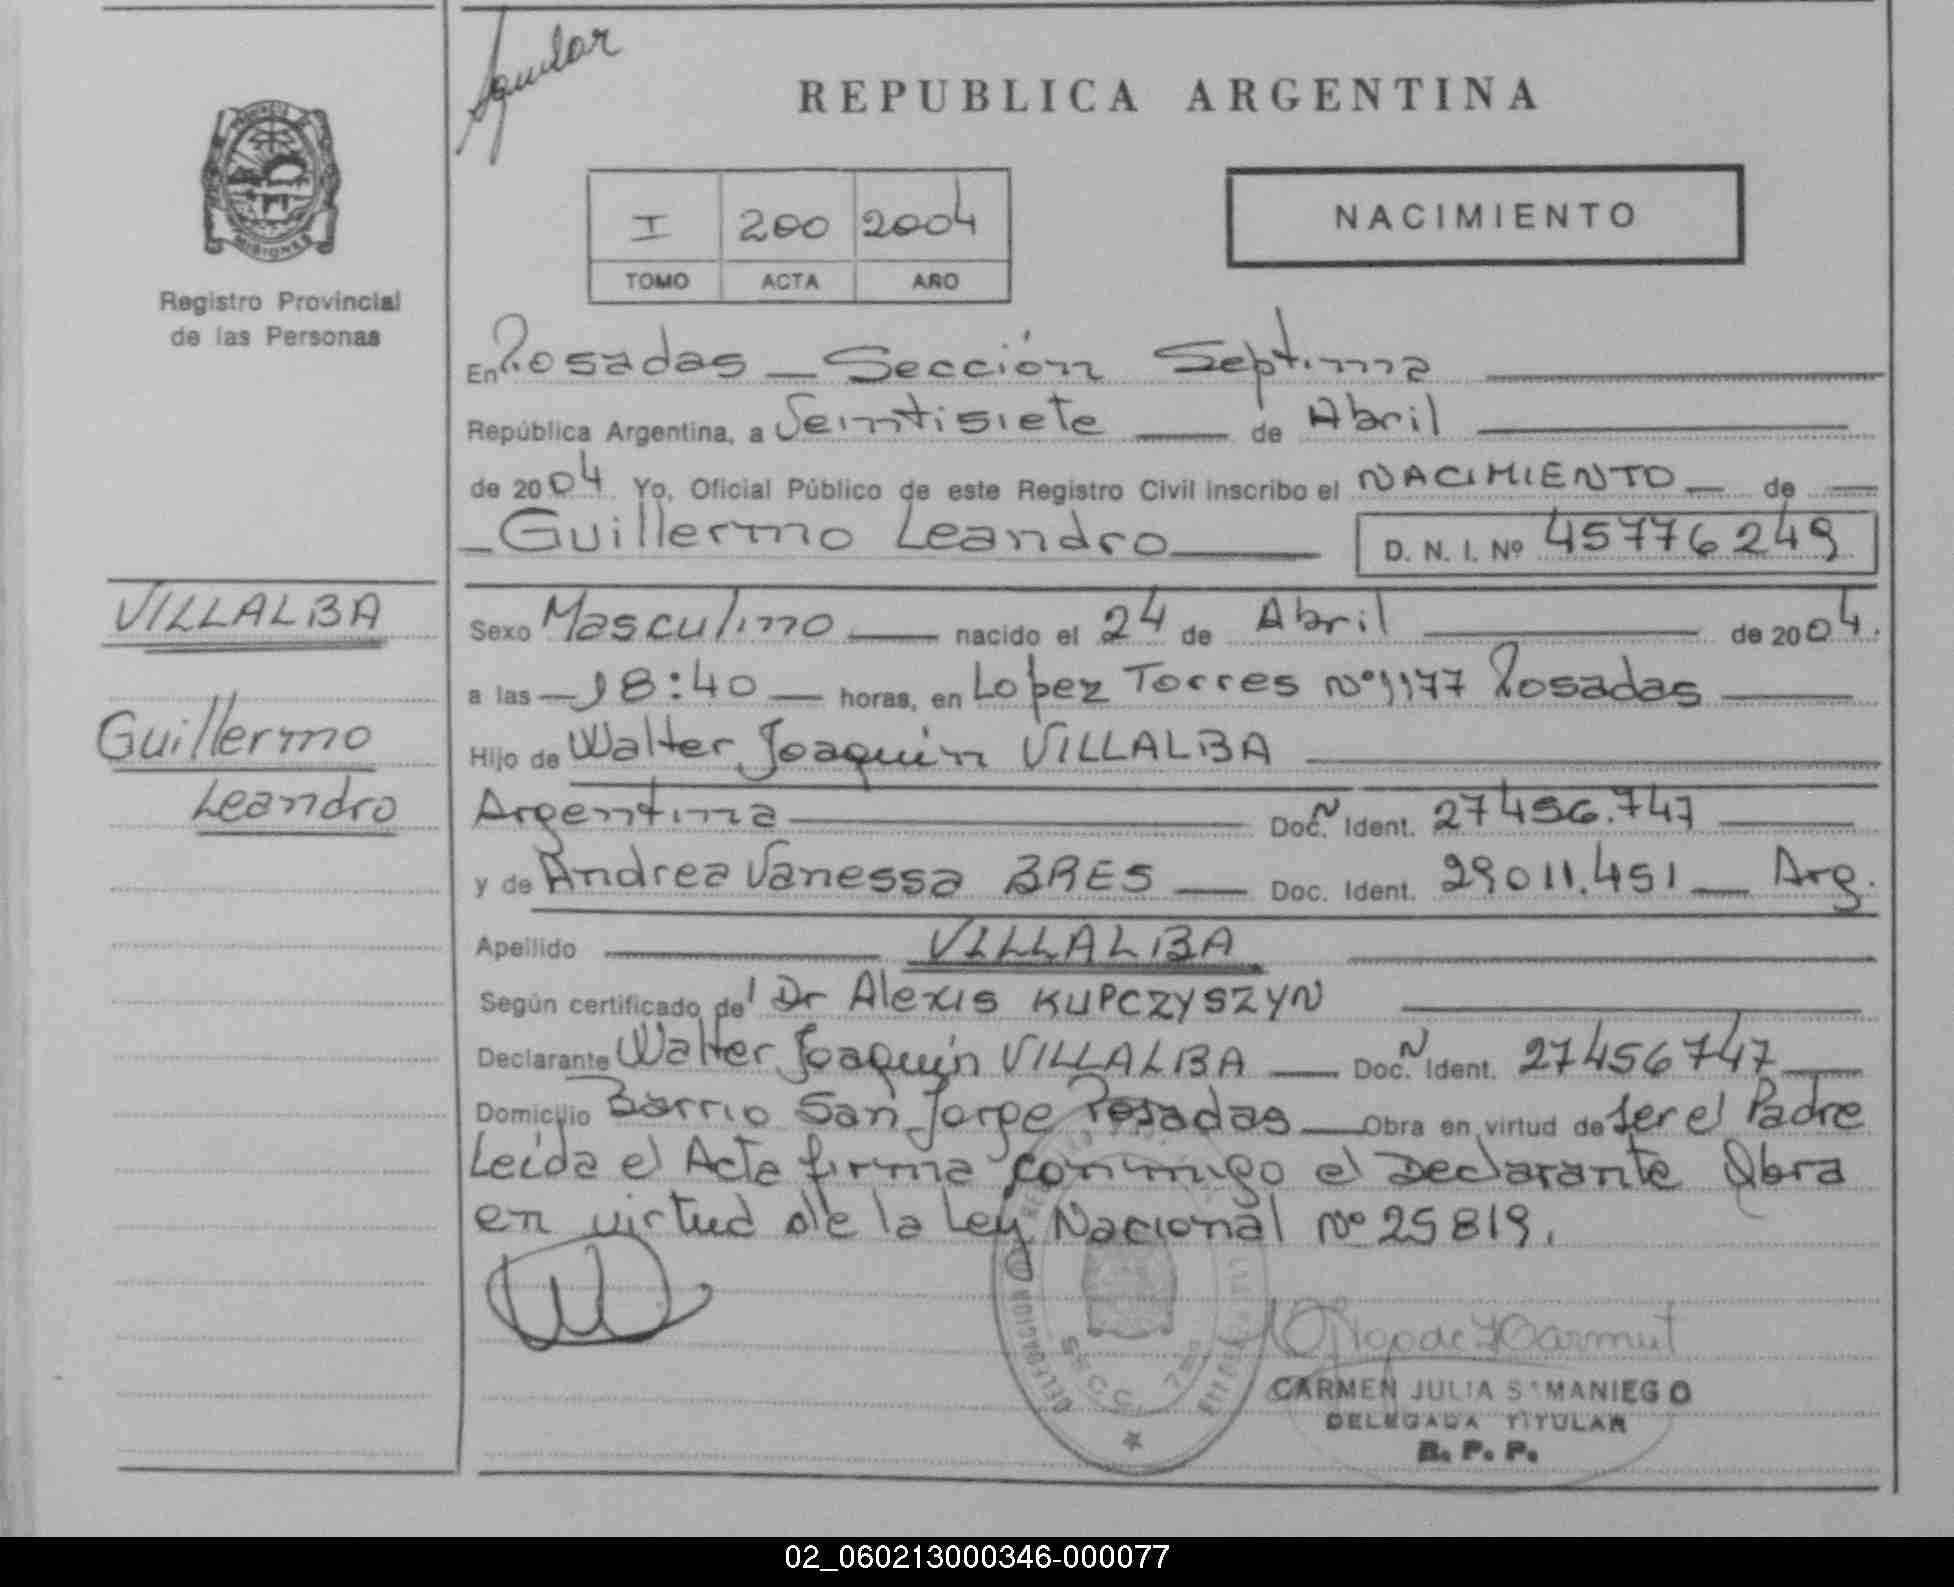 Aguilar
REPUBLICA ARGENTINA
PROVINCIA
MISIONES
Registro Provincial
de las Personas
I 200 2004
TOMO ACTA AÑO
NACIMIENTO
En Posadas — Sección Septima
República Argentina, a Veintisiete — de Abril
de 2004 Yo, Oficial Público de este Registro Civil inscribo el NACIMIENTO — de —
— Guillermo Leandro — D. N. I. Nº 45776249
VILLALBA
Guillermo
Leandro
Sexo Masculino — nacido el 24 de Abril — de 2004.
a las — 18:40 — horas, en Lopez Torres Nº 1177 Posadas —
Hijo de Walter Joaquín VILLALBA
Argentina — Doc. N Ident. 27456.747 —
y de Andrea Vanessa BRES — Doc. Ident. 29011.451 — Arg.
Apellido — VILLALBA —
Según certificado del Dr Alexis KUPCZYSZYN —
Declarante Walter Joaquín VILLALBA — Doc. N Ident. 27456747 —
Domicilio Barrio San Jorge Posadas — Obra en virtud de ser el Padre
Leída el Acta firma conmigo el Declarante Obra
en virtud de la Ley Nacional Nº 25819.
DELEGACION
SECC. 7
CARMEN JULIA SAMANIEGO
DELEGADA TITULAR
R. P. P.
02_060213000346-000077